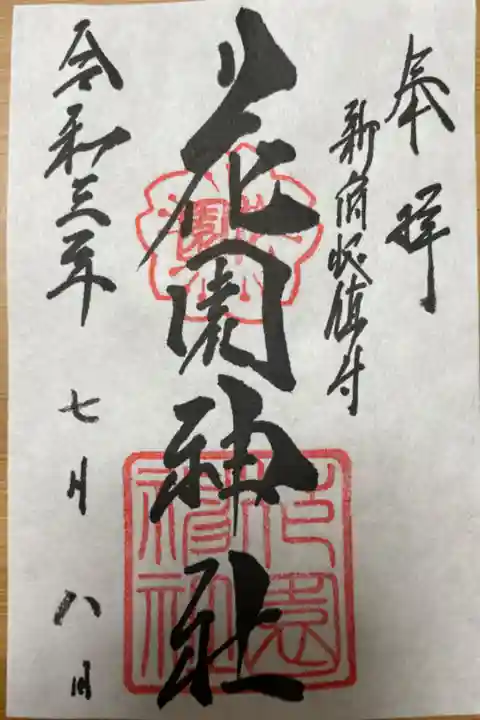 奉拝
新宿総鎮守
花園神社
令和三年
七月
八日